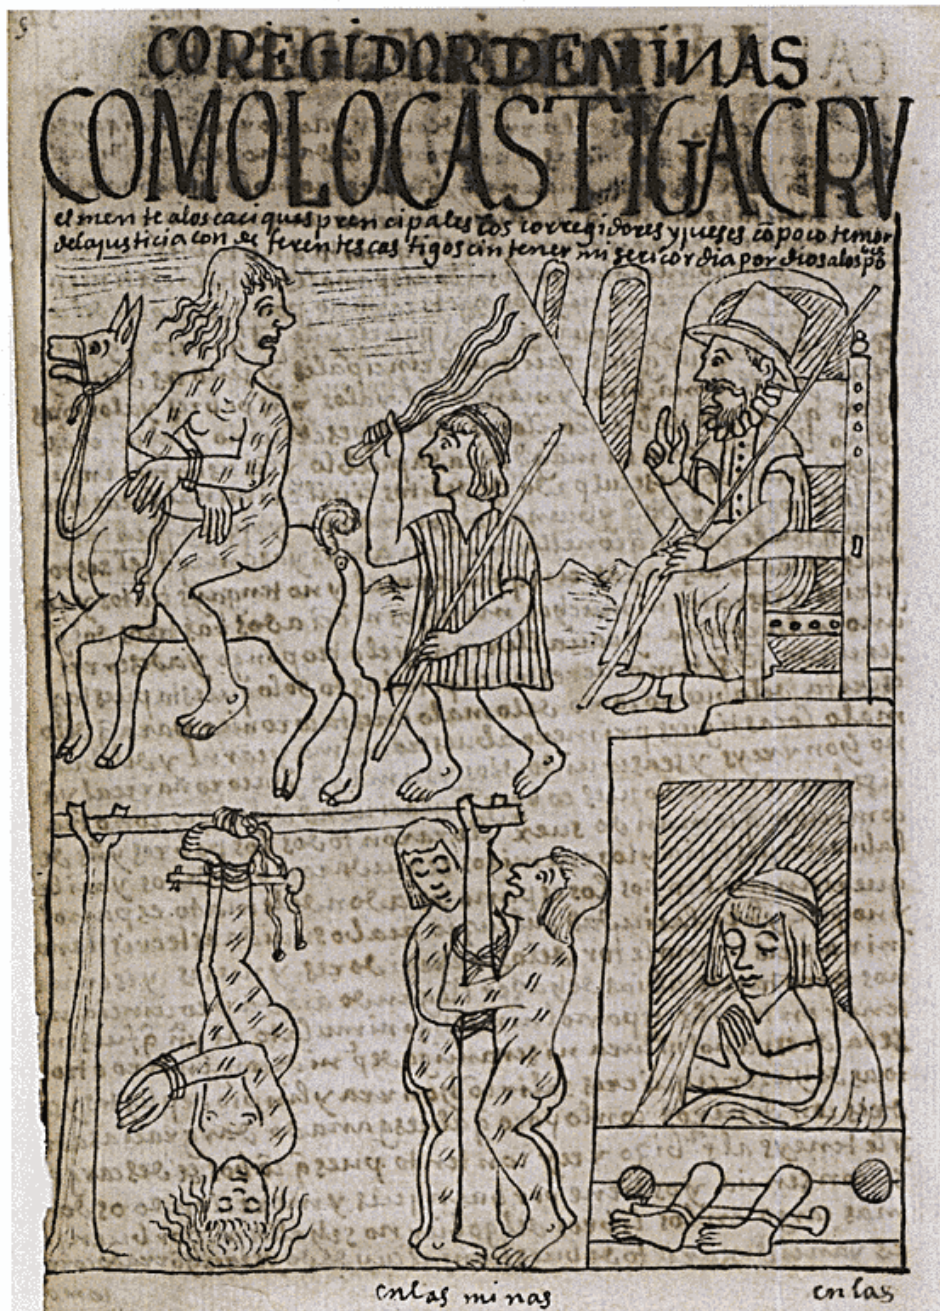 COREGIDOR DE MINAS
COMO LO CASTIGA CRV
elmente a los caciques prencipales los corregidores y jueses co poco temor
de la justicia con deferentes castigos cin tener misericordia por dios a los po
bres
en las minas
en las